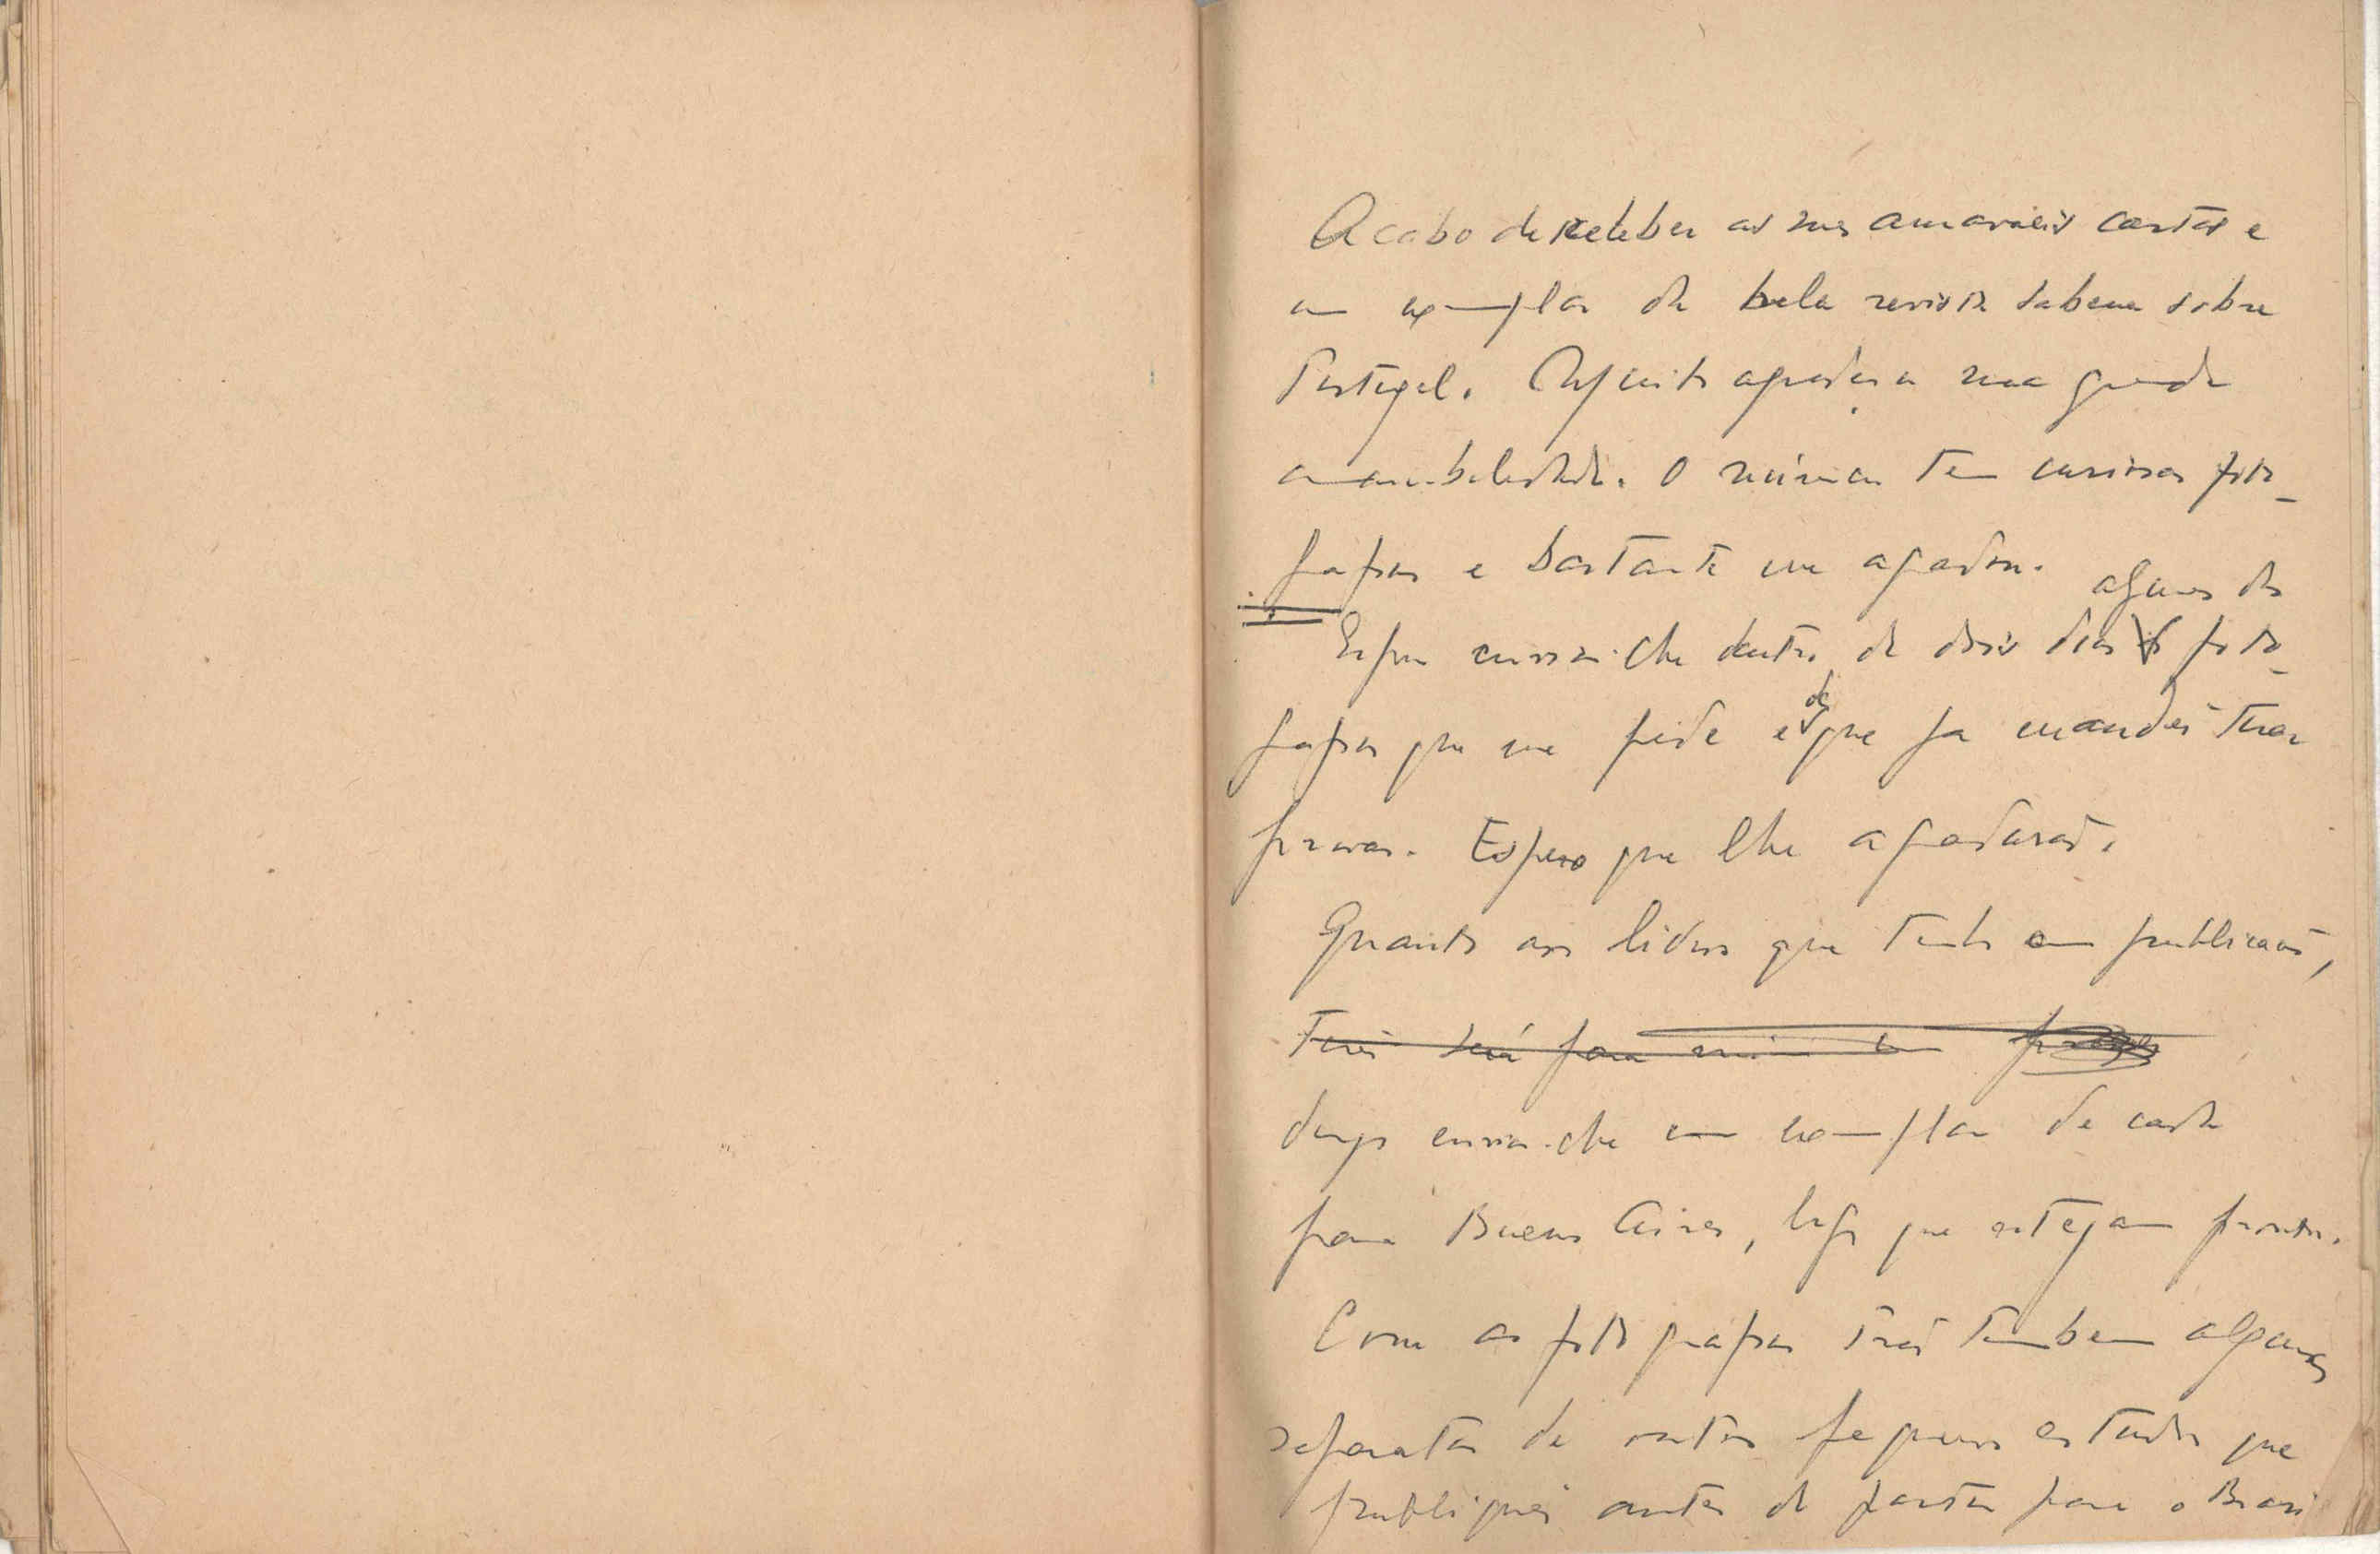 Acabo de receber as suas amaveis cartas e
um exemplar da bela revista Sabena sobre
Portugal. Muito agradeço a sua grande
amabilidade. O número tem curiosas foto-
grafias e bastante me agradou.
algumas das
Espero enviar-lhe dentro de dois dias as foto-
grafias que me pede e de que já mandei tirar
provas. Espero que lhe agradarão.
Quanto aos livros que tenho em publicação,
Terei será para mim um
desejo enviar-lhe um exemplar de cada
para Buenos Aires, logo que estejam prontos.
Com as fotografias irão tambem algumas
separatas de outros pequenos estudos que
publiquei antes de partir para o Brasil